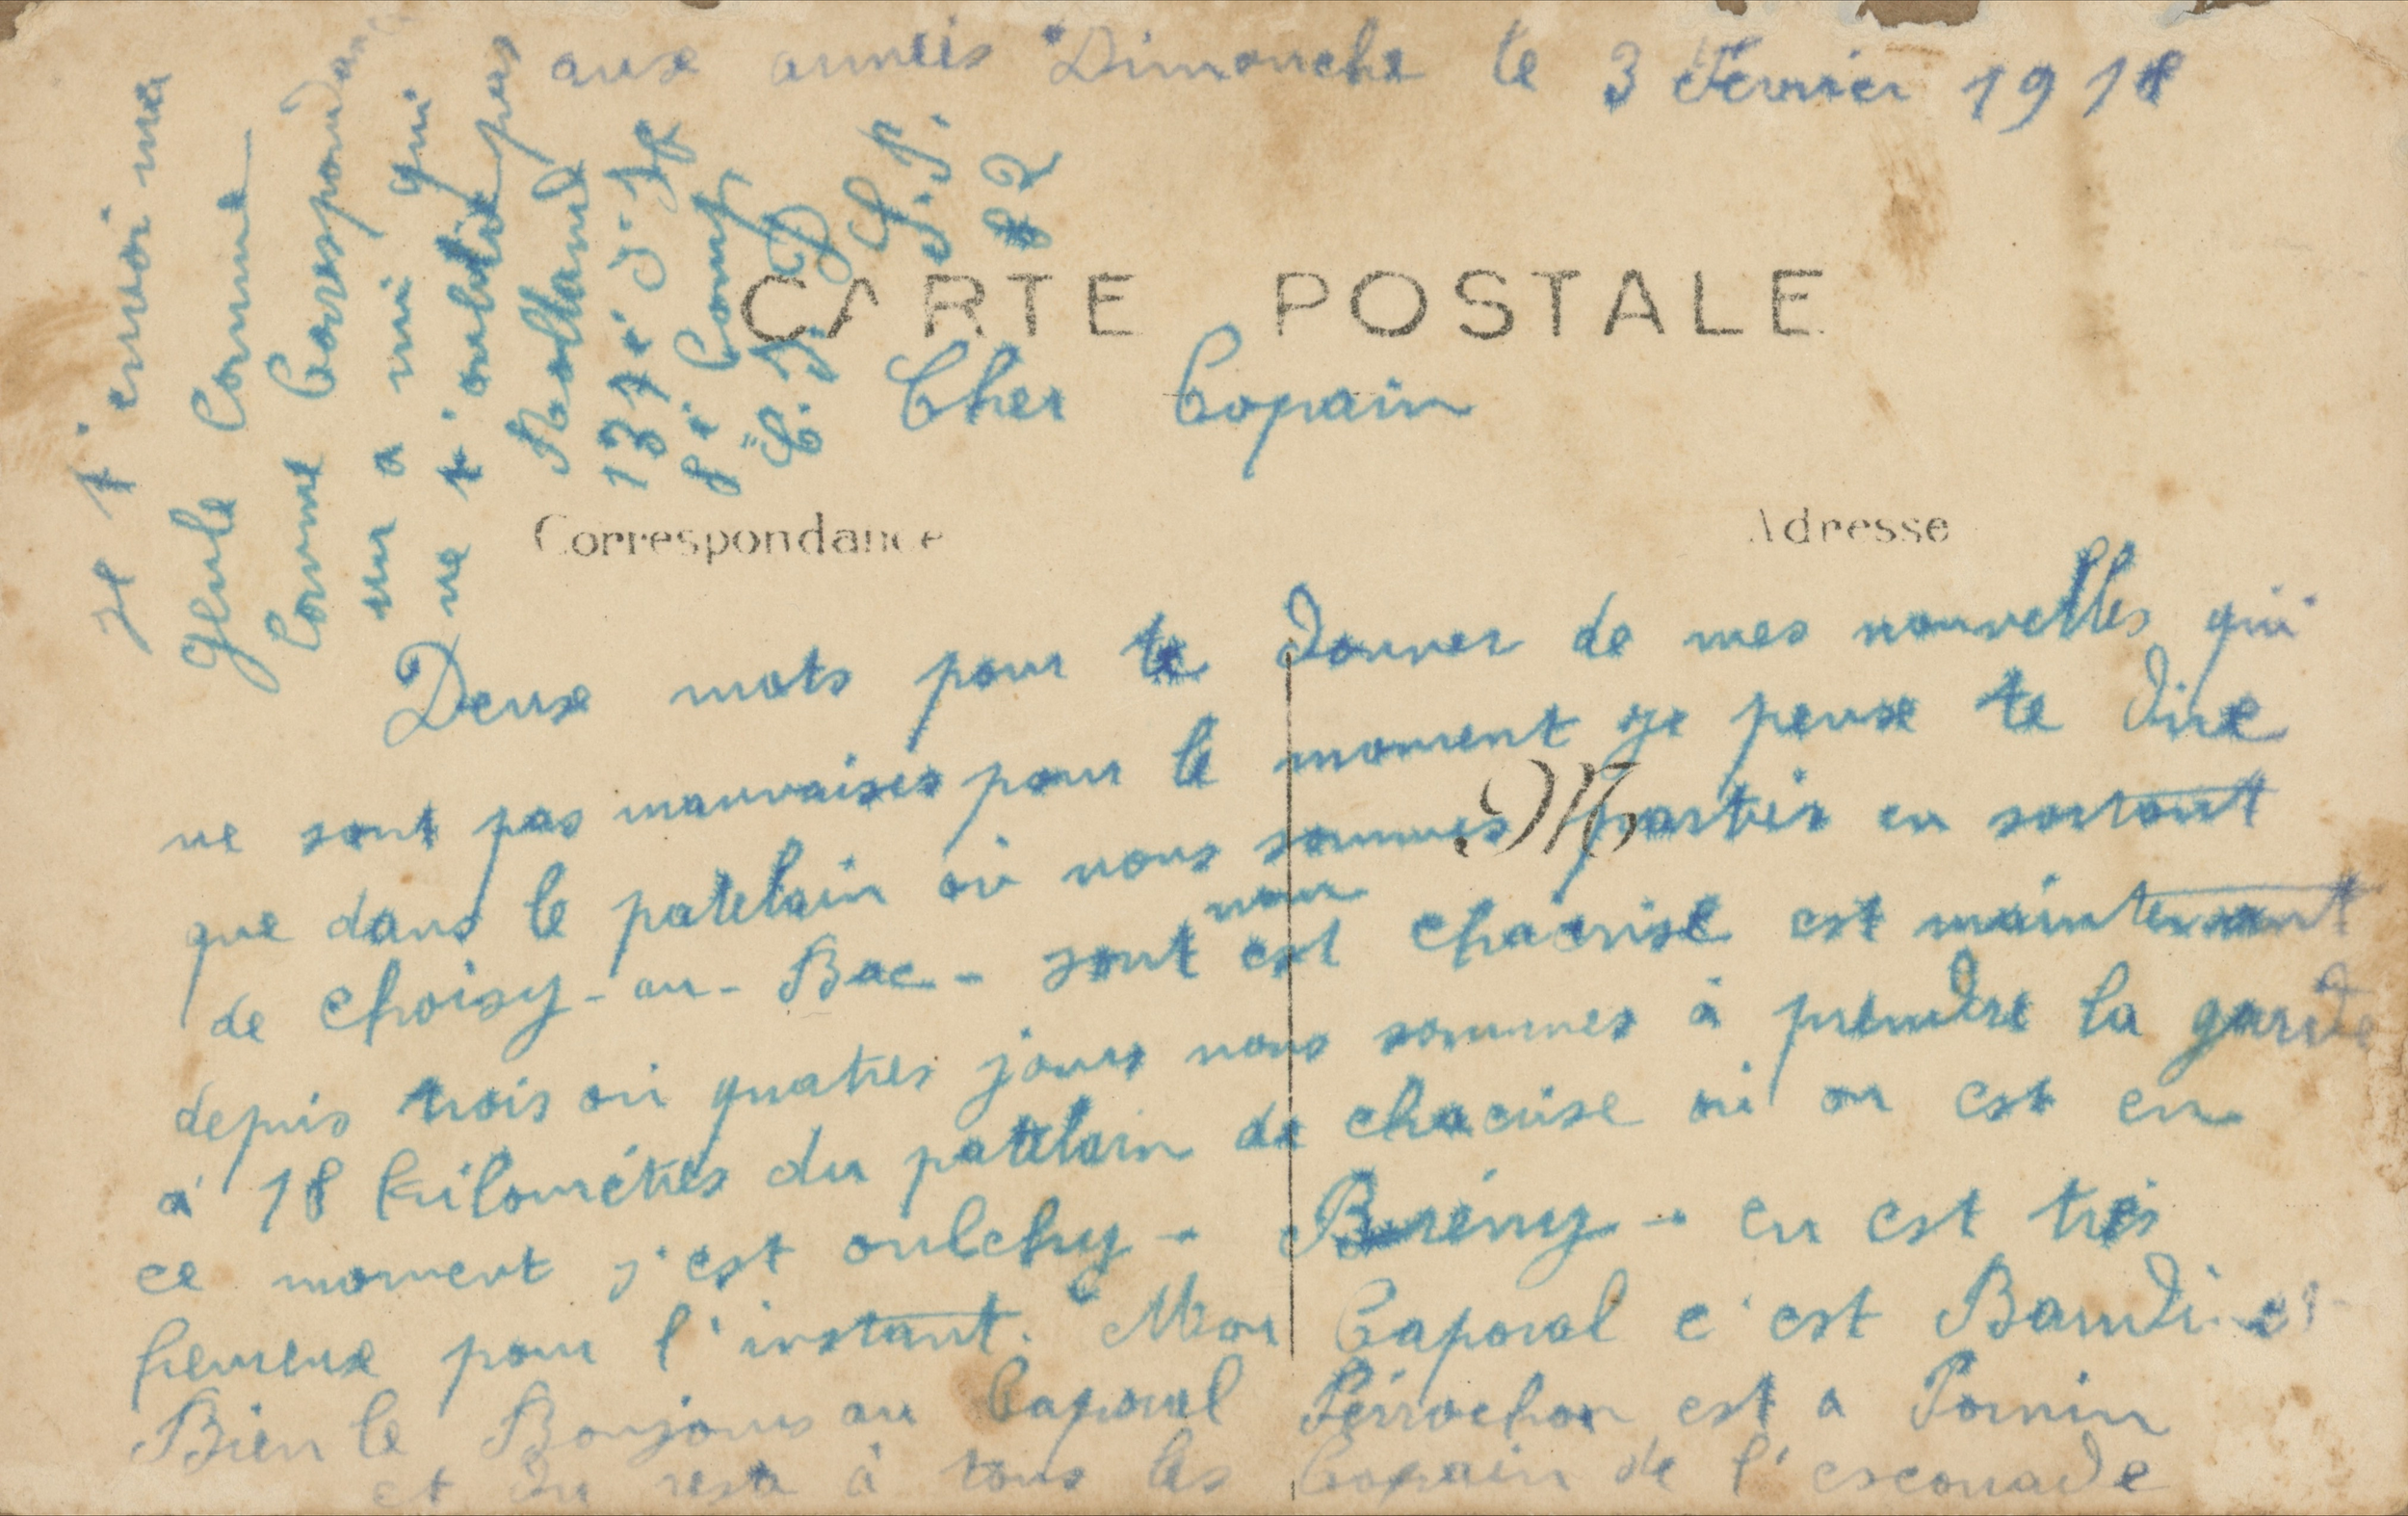 aux armées Dimanche le 3 Fevrier 1918
CARTE POSTALE
Cher Copain
Correspondance
Adresse
Deux mots pour te donner de mes nouvelles qui
ne sont pas mauvaises pour le moment je peuxe te dire
que dans le patelain où nous sommes partir en sortant
de choisy-au-Bac- sont nom est chacrise est maintenant
depuis trois où quatres jours nous sommes à prendre la garde
à 18 kilométres du patelain de chacrise où on est en
ce moment s'est oulchy - Brény - en est très
heureux pour l'instant. Mon Caporal c'est Baudi
Bien le Bonjour au Caporal Perrochon est a Pornin
et du reste à tous les Copain de l'escouade
Je t'envoi ma
Geule Comme
Comme Correspondanc
un a mi qui
ne t'oublie pas
Rolland
137e J. If
8e Comp
C.J.D
S.P.
82